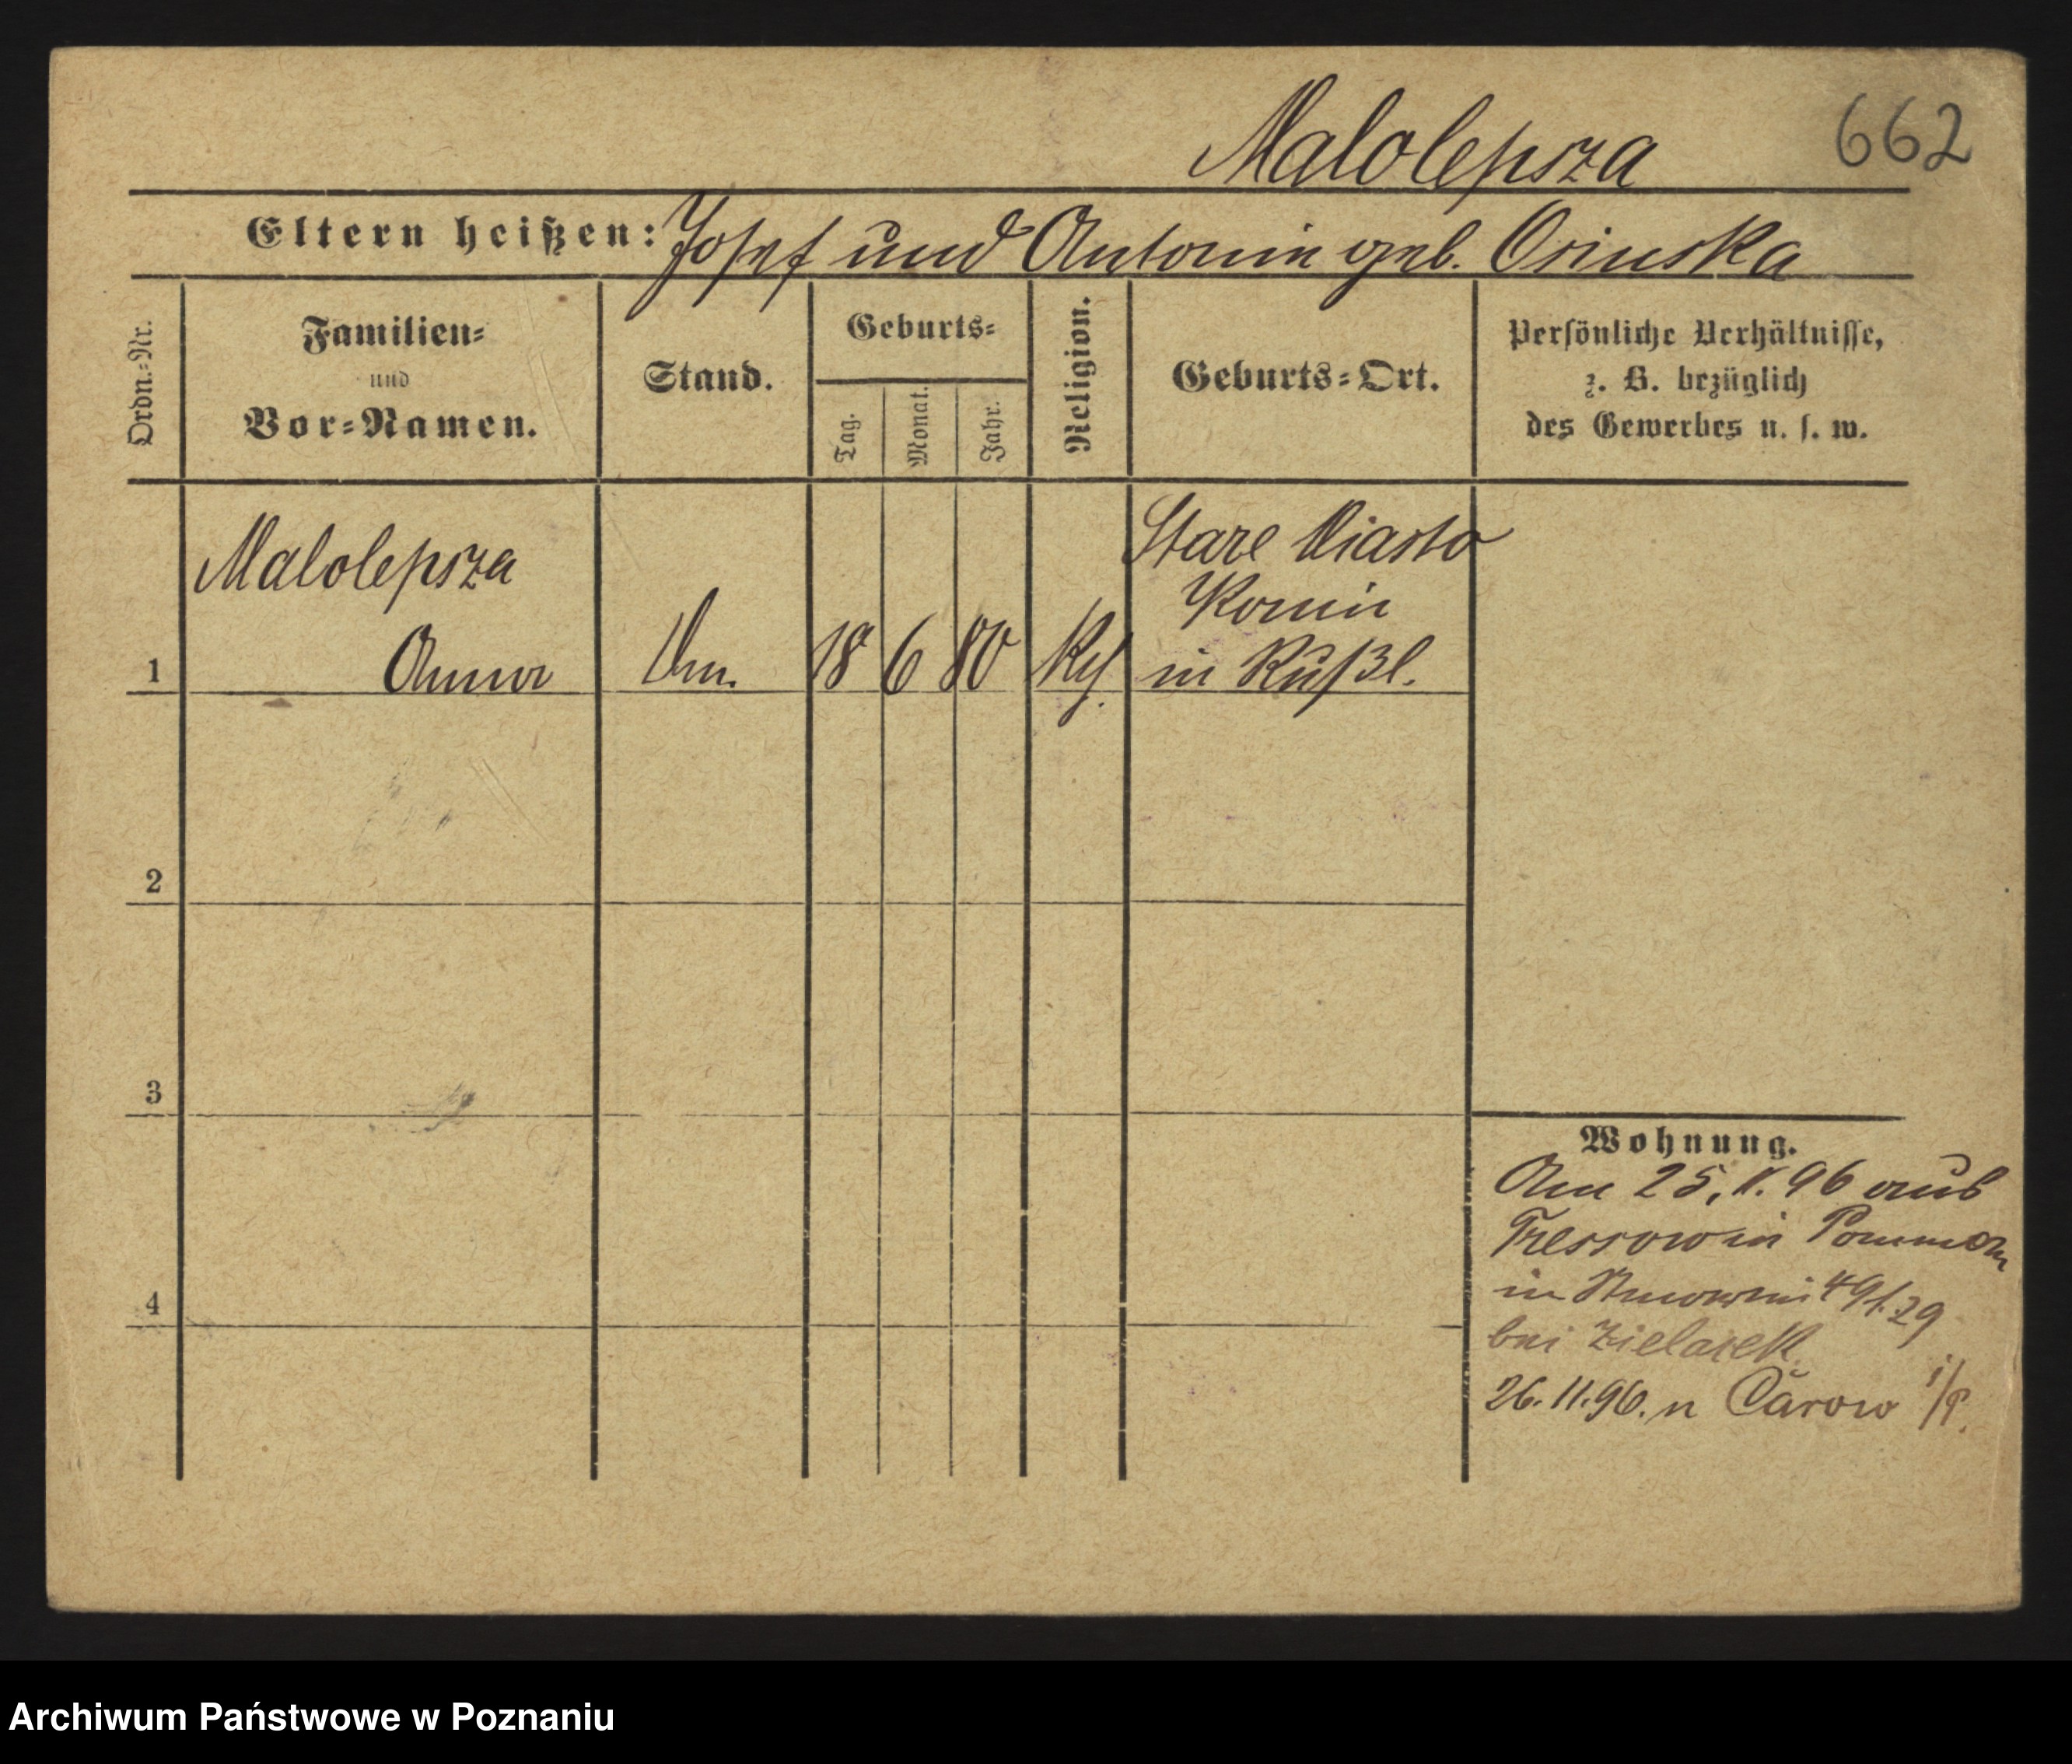 Malolepsza
662
Eltern heißen: Josef und Antonin geb. Osinska
Ordn.-Nr.
Familien-
und
Vor-Namen.
Stand.
Geburts-
Tag.
Monat.
Jahr.
Religion.
Geburts-Ort.
Persönliche Verhältnisse,
z. B. bezüglich
des Gewerbes u. s. w.
Malolepsza
Anna
18 6 80
Stare Miasto
Konin
in Rußl.
1
2
3
4
Wohnung.
Am 25, 96 aus
Tressow in Pommern
in 491.29
bei Zielasek
26.11.96. n Carow i/P.
Archiwum Państwowe w Poznaniu